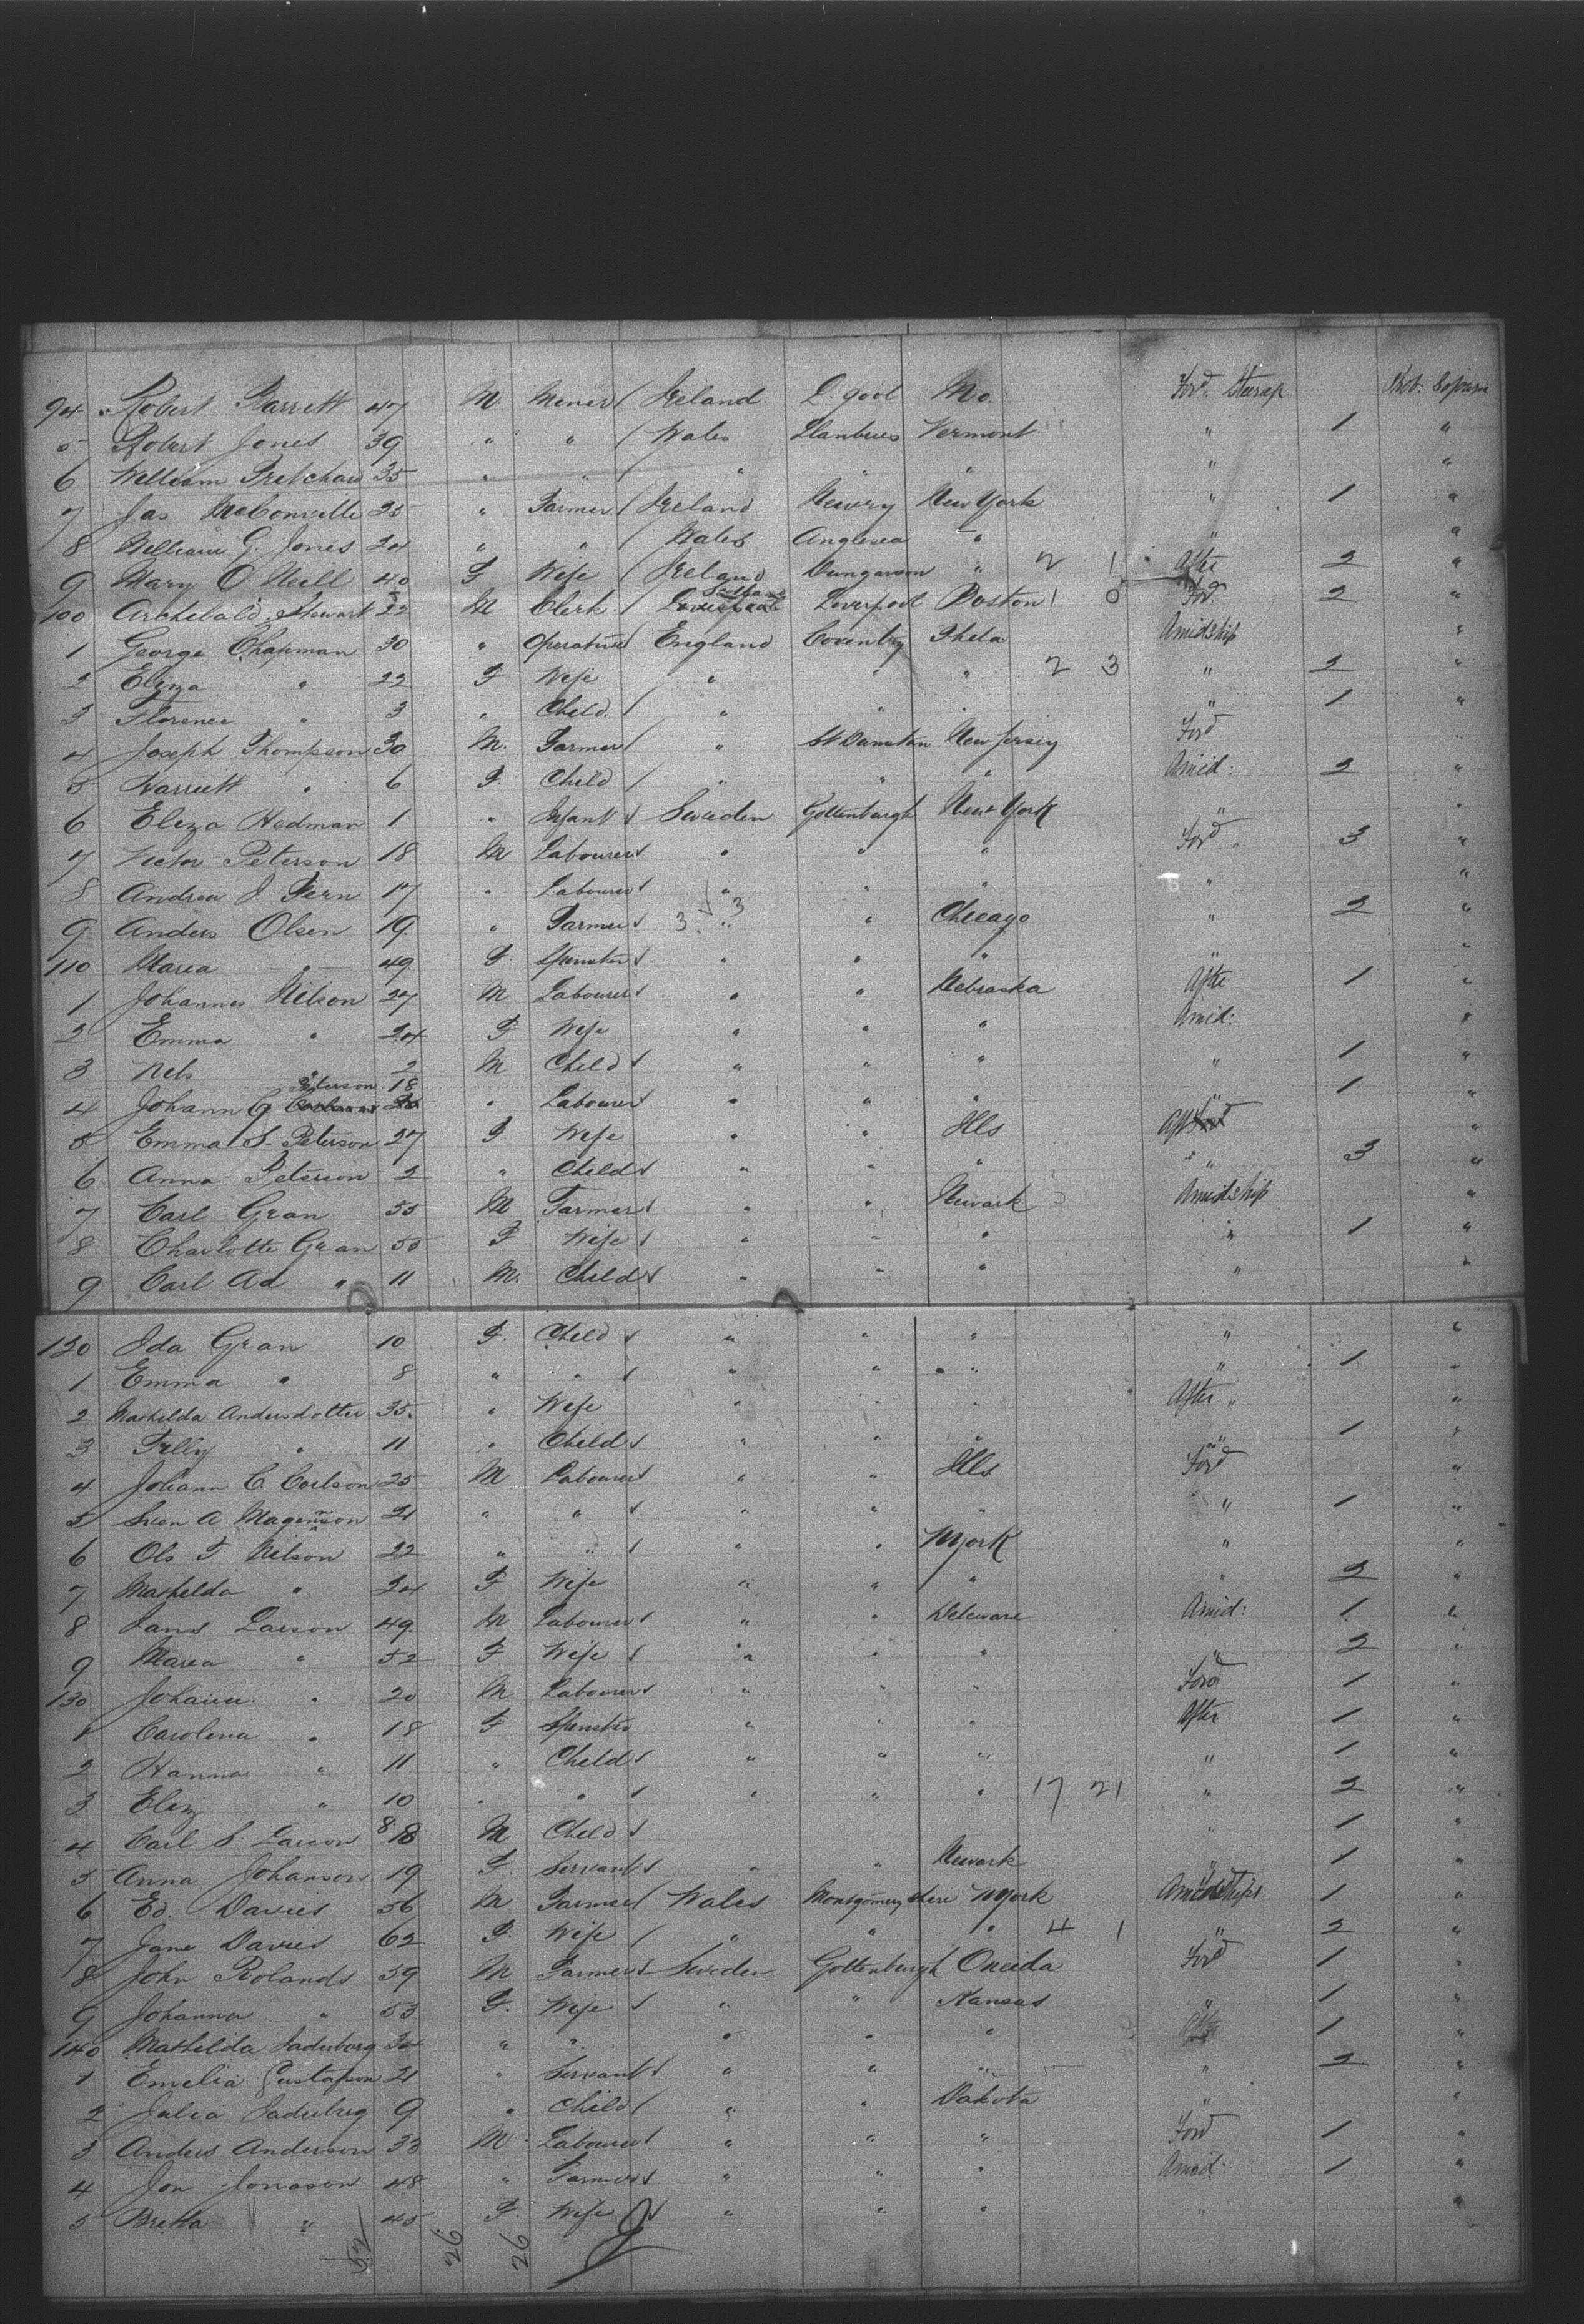 94 Robert Barrett 47 M Miner Ireland L.pool Mo. Ford. Steerage Prot: Sojourn
5 Robert Jones 39 " " Wales Llanberes Vermont " 1 "
6 William Pretchard 35 " " " " " " "
7 Jas McConville 25 " Farmer Ireland Newry New York " 1 "
8 William G. Jones 24 " " Wales Anglesea " " "
9 Mary O'Neill 40 F Wife Ireland Dungarvon " 2 1 Afte 2 "
100 Archibald Stewart 22 M Clerk Scotland Liverpool Boston 1 0 Ford 2 "
1 George Chapman 30 " Operative England Coventry Phela Amidship "
2 Eliza " 22 F Wife " " " 2 3 " 2 "
3 Florence " 3 " Child " " " " 1 "
4 Joseph Thompson 30 M. Farmer " St Dunstan New Jersey Ford "
5 Harriett " 6 F. Child " " " Amid: 2 "
6 Eliza Hedman 1 " Infant Sweden Gottenburgh New York " "
7 Victor Peterson 18 M Labourer " " " Ford " 3 "
8 Andrew J Fern 17 " Labourer " " " " "
9 Anders Olsen 19 " Farmer 3 " 3 " Chicago " 2 "
110 Maria " 49 F. Spinster " " " " "
1 Johannes Nilson 27 M Labourer " " Nebraska Afte 1 "
2 Emma " 24 F Wife " " " Amid: "
3 Nels " 2 M Child " " " " 1 "
Peterson 18
4 Johann G " Labourer " " " " 1 "
5 Emma S. Peterson 27 F Wife " " Ills Aft "
6 Anna Peterson 2 " Child " " " " 3 "
7 Carl Gran 55 M Farmer " " Newark Amidship "
8 Charlotte Gran 55 F. Wife " " " " 1 "
9 Carl Ad " 11 M. Child " " " " "
120 Ida Gran 10 F. Child " " " " "
1 Emma " 8 " " " " " " 1 "
2 Mathilda Andersdotter 35 " Wife " " " After " "
3 Tilly " 11 " Child " " " " 1 "
4 Johann C Carlson 25 M Labourer " " Ills Ford "
5 Sven A Magenson 21 " " " " " " 1 "
6 Ols F Nilson 22 " " " " NYork " "
7 Mathilda " 24 F Wife " " " " 2 "
8 Lans Larson 49 M Labourer " " Deleware Amid: 1 "
9 Maria " 52 F Wife " " " " 2 "
130 Johann " 20 M Labourer " " " Ford 1 "
1 Carolina " 18 F Spinster " " " After 1 "
2 Hanna " 11 " Child " " " " 1 "
3 Eliz " 10 " " " " " 17 21 " 2 "
4 Carl S Larson 8 M Child " 1 "
5 Anna Johanson 19 F. Servant " " Newark " 1 "
6 Ed. Davies 56 M Farmer Wales Montgomeryshire NYork Amidships 1 "
7 Jane Davies 62 F. Wife " " " 4 1 " 2 "
8 John Rolands 59 M Farmer Sweden Gottenburgh Oneida Ford 1 "
9 Johanna " 53 F. Wife " " Kansas " 1 "
140 Mathilda Saderberg 34 " " " " " Afte 1 "
1 Emelia Gustafson 21 " Servant " " " " 2 "
2 Julia Saderberg 9 " Child " " Dakota " "
3 Anders Anderson 33 M Labourer " " " Ford 1 "
4 Jon Jonason 48 " Farmer " " " Amid: 1 "
5 Bretta " 45 F. Wife " " " " "
52 26 26